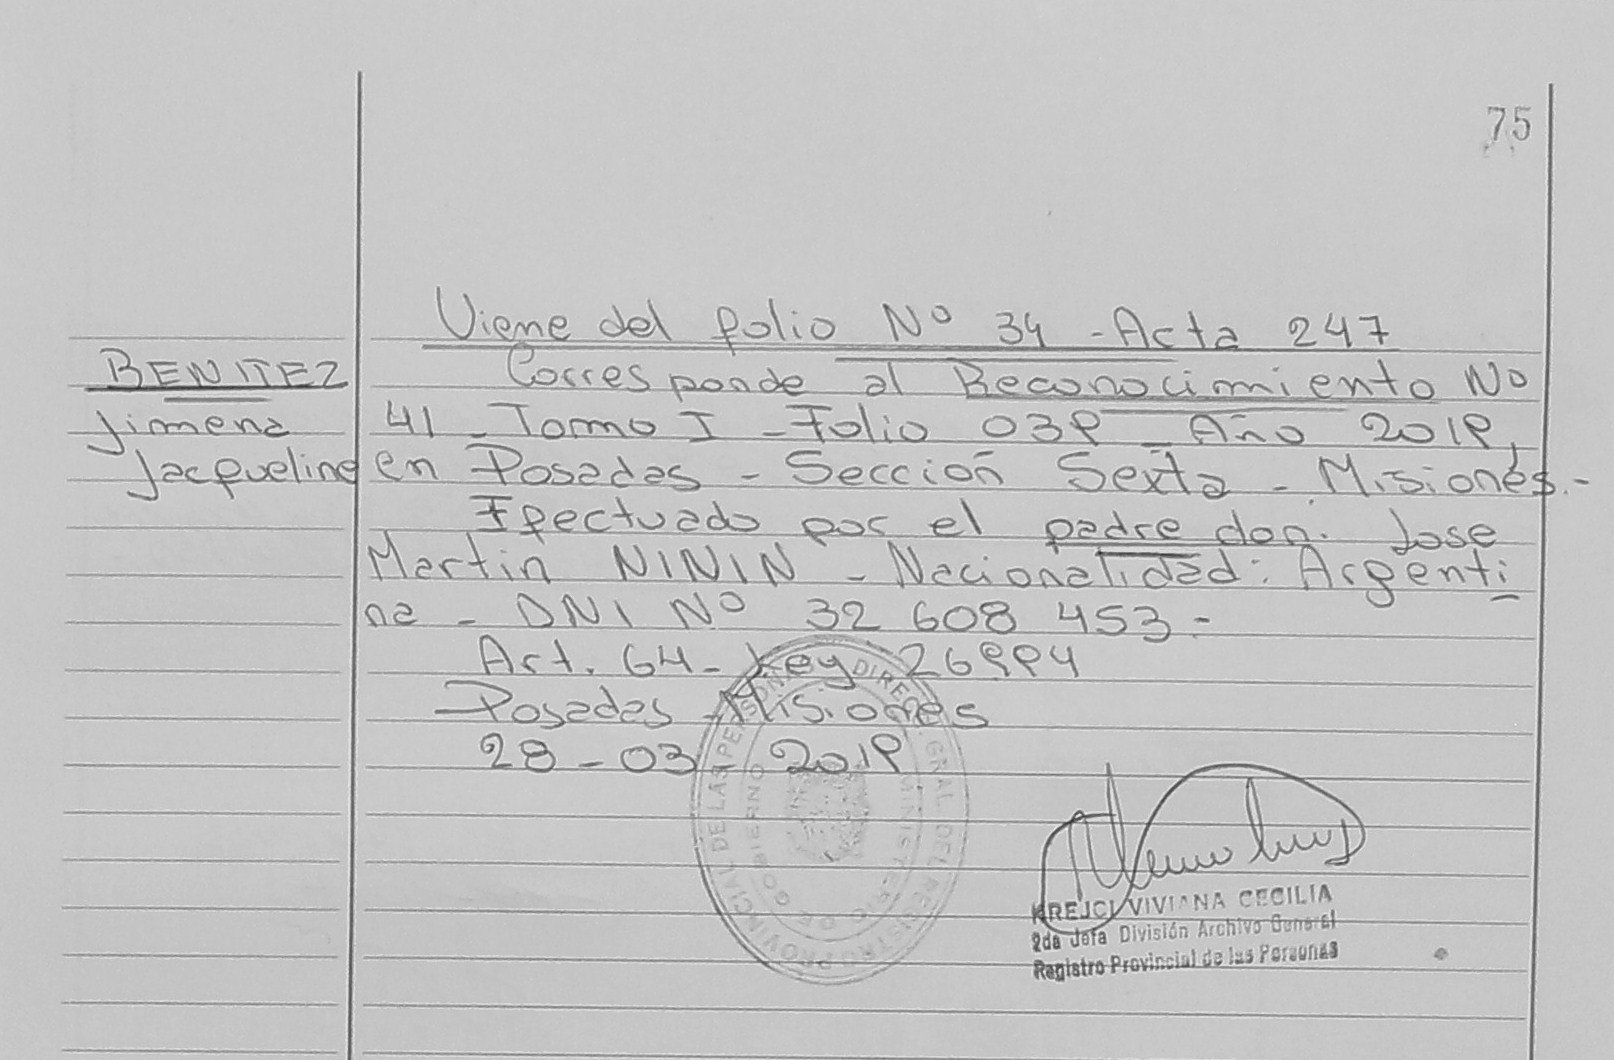 75
Viene del folio Nº 34 - Acta 247
BENITEZ
Jimena
Jacqueline
Corresponde al Reconocimiento Nº
41 - Tomo I - Folio 039 - Año 2019,
en Posadas - Sección Sexta - Misiones.-
Efectuado por el padre don: Jose
Martin NININ - Nacionalidad: Argenti
na - DNI Nº 32 608 453 -
Art. 64 - Ley 26994
Posadas - Misiones
28 - 03 - 2019
DIREC. GRAL. DEL REGISTRO PROVINCIAL DE LAS PERSONAS
MINISTERIO DE GOBIERNO
KREJCI VIVIANA CECILIA
2da Jefa División Archivo General
Registro Provincial de las Personas